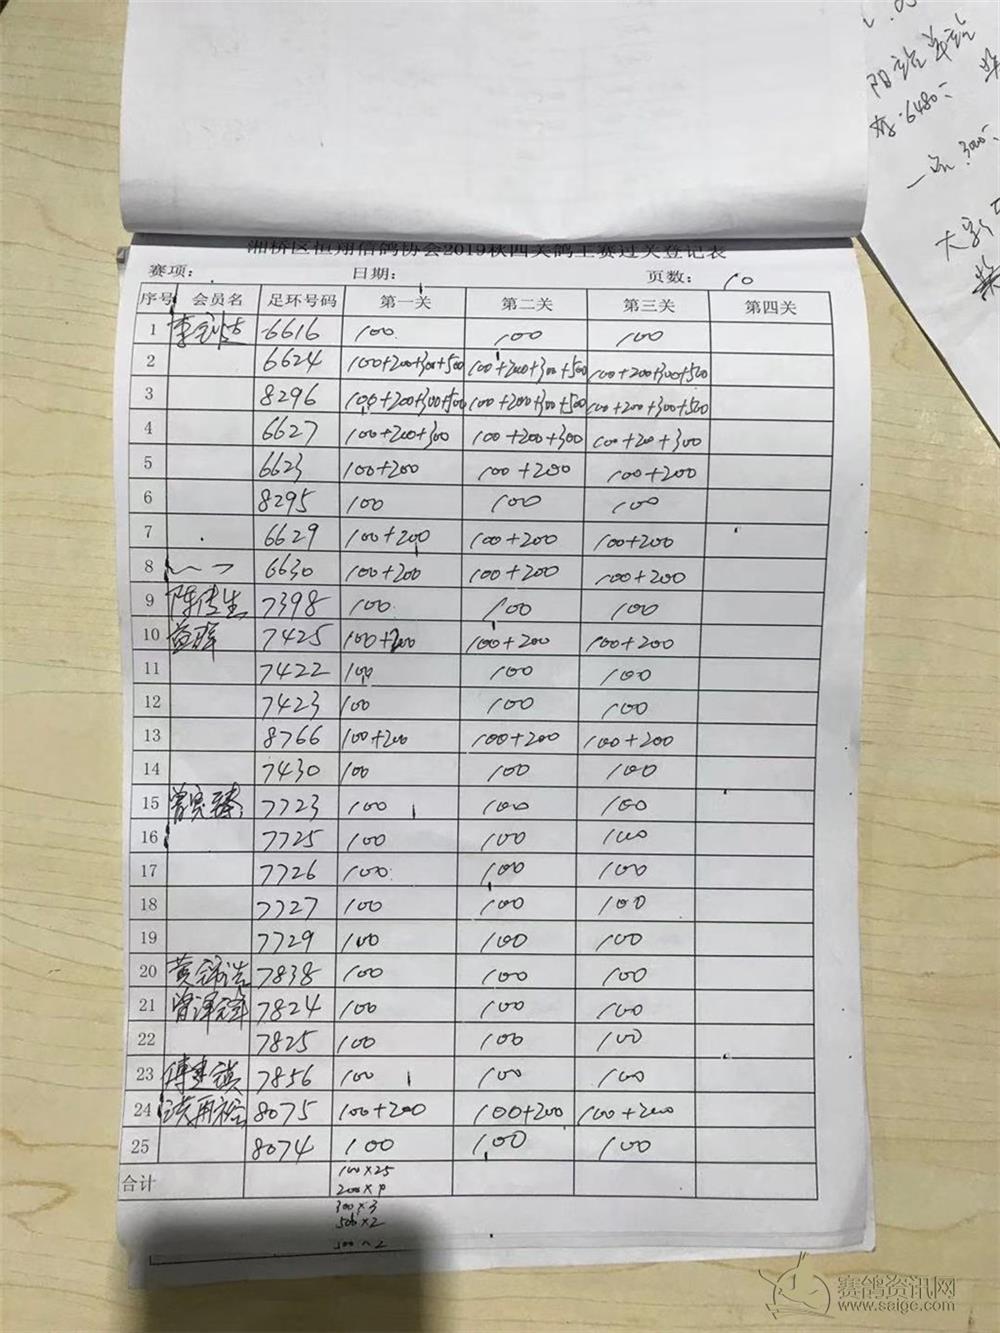 6480
3000
湘桥区恒翔信鸽协会2019秋四关鸽王赛过关登记表
赛项: 日期: 页数: 10
序号 会员名 足环号码 第一关 第二关 第三关 第四关
1 6616 100 100 100
2 6624 100+200+300+500 100+200+300+500 100+200+300+500
3 8296 100+200+300+500 100+200+300+500 100+200+300+500
4 6627 100+200+300 100+200+300 100+200+300
5 6623 100+200 100+200 100+200
6 8295 100 100 100
7 6629 100+200 100+200 100+200
8 6630 100+200 100+200 100+200
9 陈传生 7398 100 100 100
10 7425 100+200 100+200 100+200
11 7422 100 100 100
12 7423 100 100 100
13 8766 100+200 100+200 100+200
14 7430 100 100 100
15 7723 100 100 100
16 7725 100 100 100
17 7726 100 100 100
18 7727 100 100 100
19 7729 100 100 100
20 7838 100 100 100
21 7824 100 100 100
22 7825 100 100 100
23 7856 100 100 100
24 8075 100+200 100+200 100+200
25 8074 100 100 100
合计 100×25
300×3
500×2
赛鸽资讯网
www.saige.com